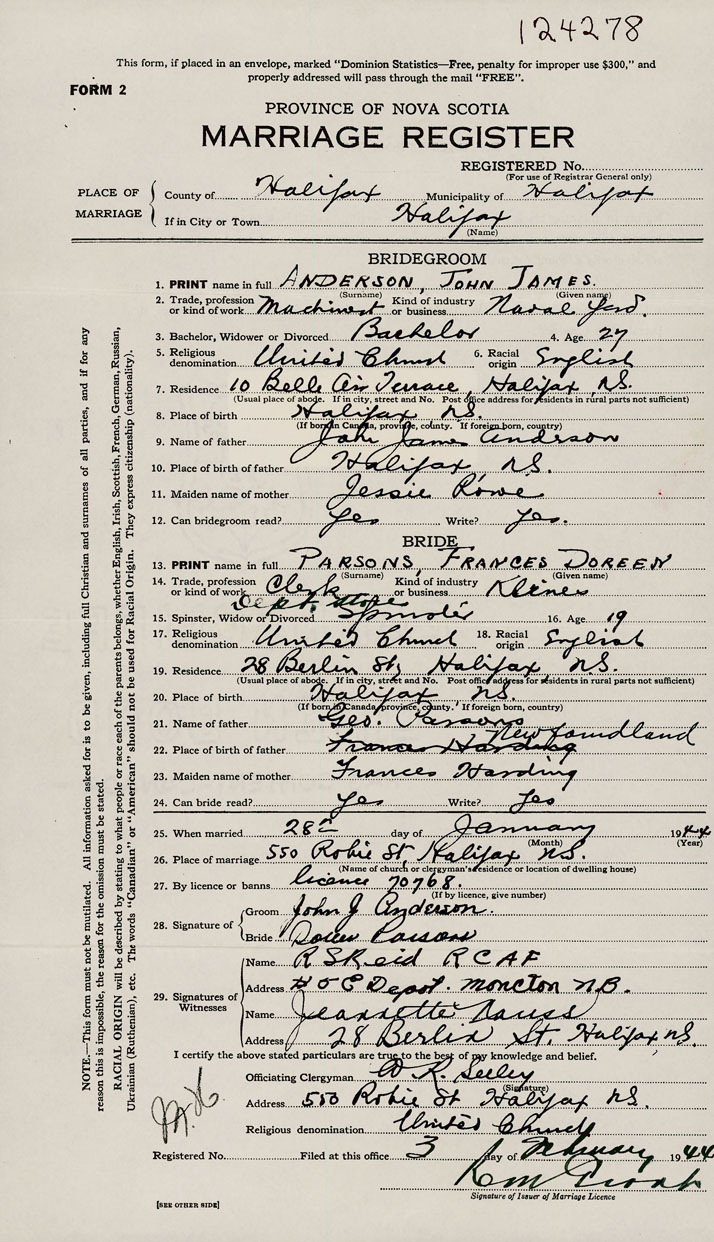 124278
This form, if placed in an envelope, marked "Dominion Statistics—Free, penalty for improper use $300," and
properly addressed will pass through the mail "FREE".
FORM 2
PROVINCE OF NOVA SCOTIA
MARRIAGE REGISTER
REGISTERED No.
(For use of Registrar General only)
PLACE OF MARRIAGE
County of Halifax Municipality of Halifax
If in City or Town Halifax
(Name)
BRIDEGROOM
1. PRINT name in full ANDERSON, JOHN JAMES.
(Surname) (Given name)
2. Trade, profession or kind of work Machinest Kind of industry or business Naval Yard.
3. Bachelor, Widower or Divorced Bachelor 4. Age 27
5. Religious denomination United Church 6. Racial origin English
7. Residence 10 Belle Air Terrace, Halifax, N.S.
(Usual place of abode. If in city, street and No. Post office address for residents in rural parts not sufficient)
8. Place of birth Halifax N.S.
(If born in Canada, province, county. If foreign born, country)
9. Name of father John James Anderson
10. Place of birth of father Halifax, N.S.
11. Maiden name of mother Jessie Rowe
12. Can bridegroom read? Yes Write? Yes.
BRIDE
13. PRINT name in full PARSONS, FRANCES DOREEN
(Surname) (Given name)
14. Trade, profession or kind of work Clerk Kind of industry or business
Dept. Store
15. Spinster, Widow or Divorced Spinster 16. Age 19
17. Religious denomination United Church 18. Racial origin English
19. Residence 28 Berlin St, Halifax, N.S.
(Usual place of abode. If in city, street and No. Post office address for residents in rural parts not sufficient)
20. Place of birth Halifax N.S.
(If born in Canada, province, county. If foreign born, country)
21. Name of father Geo. Parsons
Newfoundland
22. Place of birth of father Frances Harding
23. Maiden name of mother Frances Harding
24. Can bride read? Yes Write? Yes
25. When married 28 day of January 1944
(Month) (Year)
26. Place of marriage 550 Robie St, Halifax N.S.
(Name of church or clergyman's residence or location of dwelling house)
27. By licence or banns licence 70768.
(If by licence, give number)
28. Signature of
Groom John J Anderson.
Bride Doreen Parsons
29. Signatures of Witnesses
Name R S Reid RCAF
Address Depot. Moncton N.B.
Name Jeannette Nauss
Address 28 Berlin St. Halifax N.S.
I certify the above stated particulars are true to the best of my knowledge and belief.
Officiating Clergyman W. R. Seeley
(Signature)
Address 550 Robie St Halifax N.S.
Religious denomination United Church
Registered No. Filed at this office 3 day of February 1944
Signature of Issuer of Marriage Licence
[SEE OTHER SIDE]
NOTE.—This form must not be mutilated. All information asked for is to be given, including full Christian and surnames of all parties, and if for any
reason this is impossible, the reason for the omission must be stated.
RACIAL ORIGIN will be described by stating to what people or race each of the parents belongs, whether English, Irish, Scottish, French, German, Russian,
Ukrainian (Ruthenian), etc. The words "Canadian" or "American" should not be used for Racial Origin. They express citizenship (nationality).